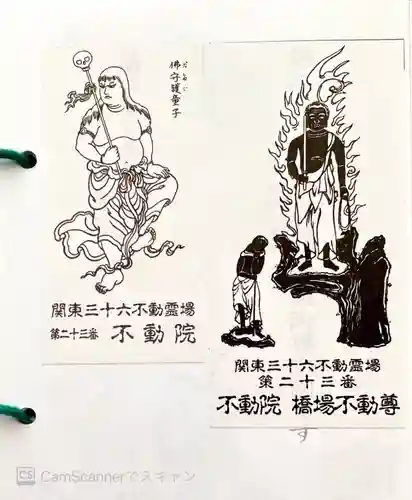 佛守護童子
関東三十六不動霊場
第二十三番 不動院
関東三十六不動霊場
第二十三番
不動院 橋場不動尊
CS CamScannerでスキャン